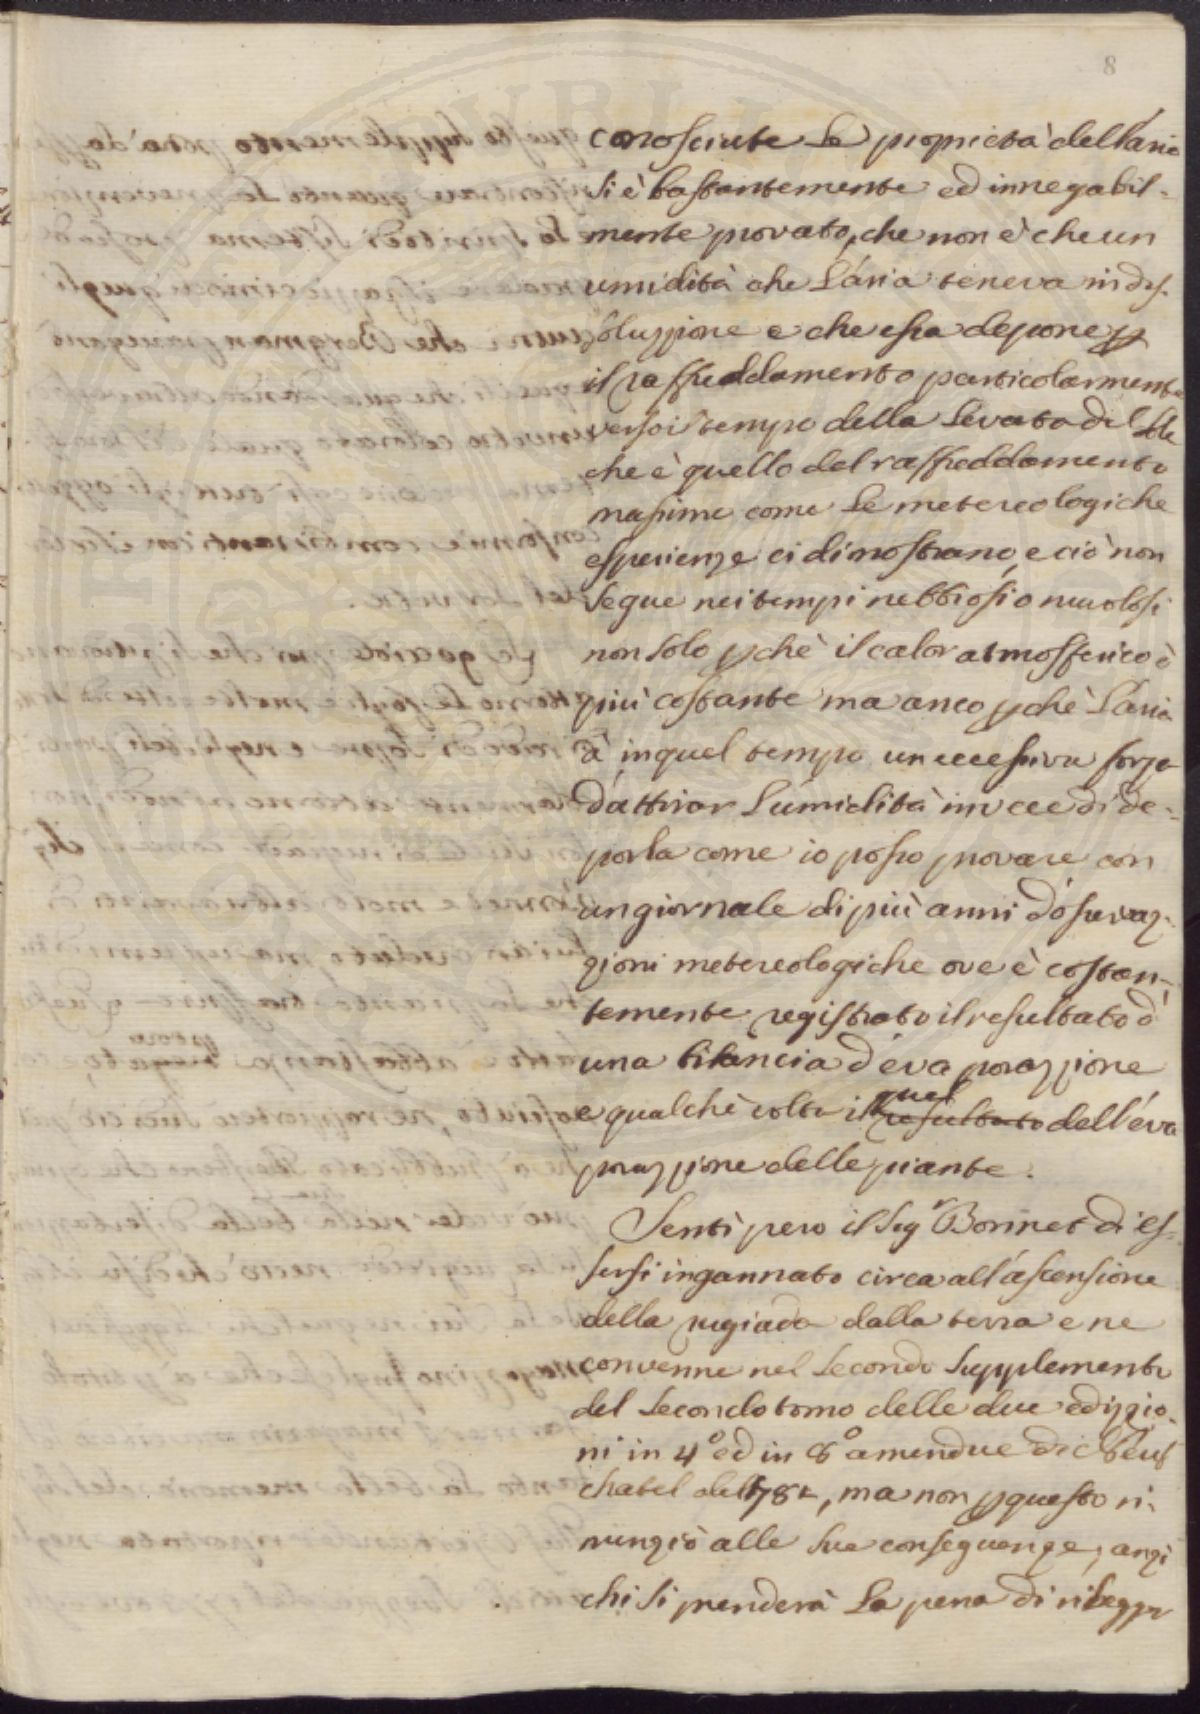 8
conosciute le proprietà dell'aria
si è bastantemente ed innegabil-
mente provato, che non è che un
umidità che l'aria teneva in dis-
soluzzione e che essa depone p
il raffreddamento particolarmente
verso il tempo della levata del Sole
che è quello del raffreddamento
massimo come le metereologiche
esperienze ci dimostrano, e ciò non
segue nei tempi nebbiosi o nuvolosi
non solo pchè il calor atmosferico è
più costante ma anco pchè l'aria
à in quel tempo un eccessiva forza
d'attirar l'umidità invece di de-
porla come io posso provare con
un giornale di più anni d'osservaz-
zioni metereologiche ove è costan-
temente registrato il resultato d
una bilancia d'evaporazzione
e qualchè volta il quel resultato dell'eva
porazzione delle piante.
Sentì pero il Sigr Bonnet di es-
sersi ingannato circa all'ascensione
della rugiada dalla terra e ne
convenne nel secondo supplemento
del secondo tomo delle due edizzio-
ni in 4o ed in 8o amendue di Neuf
chatel del 178, ma non p questo ri-
nunziò alle sue conseguenze; anzi
chi si prenderà la pena di rilegger